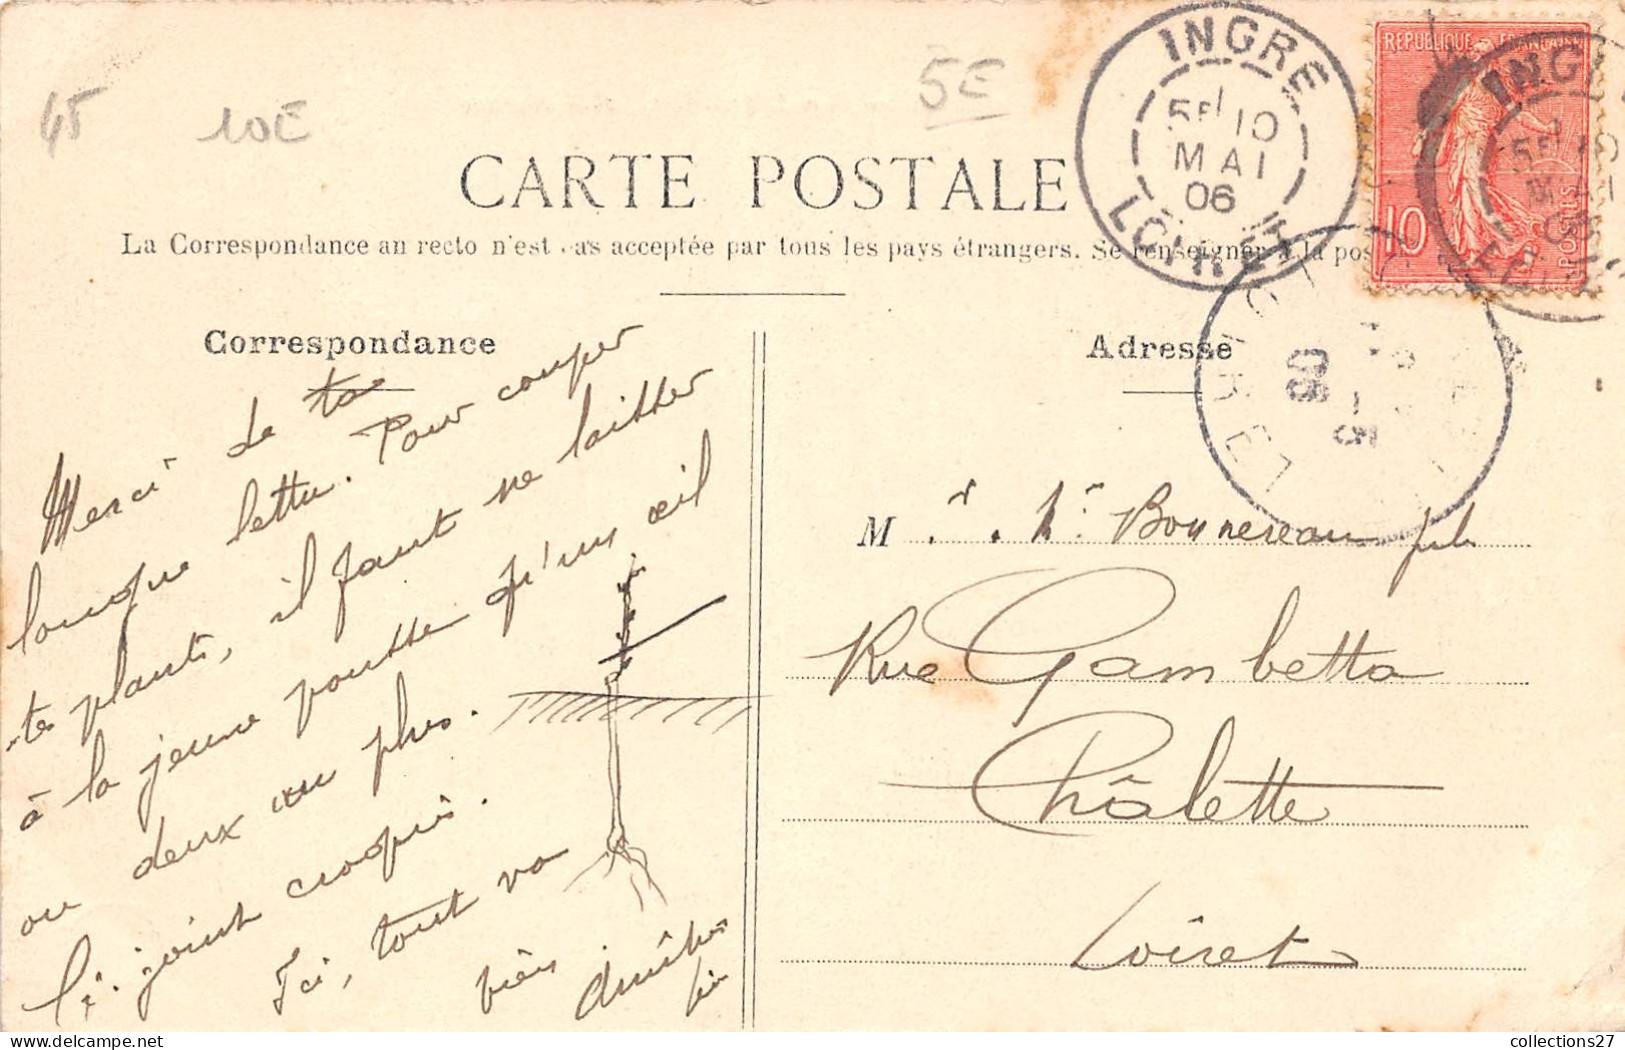 45
10E
5E
CARTE POSTALE
La Correspondance au recto n'est pas acceptée par tous les pays étrangers. Se renseigner à la pos
INGRE
5E 10
MAI
06
LOIRET
REPUBLIQUE FRANÇAISE
10
POSTES
Correspondance
Merci de ta
longue lettre. Pour couper
tes plants, il faut ne laisser
à la jeune pousse qu'un œil
ou deux au plus.
Ci-joint croquis.
Ici, tout va
bien
Amitiés
Adresse
06
LOIRET
M r. h. Bonnereau fils
Rue Gambetta
Châlette
Loiret
collections27